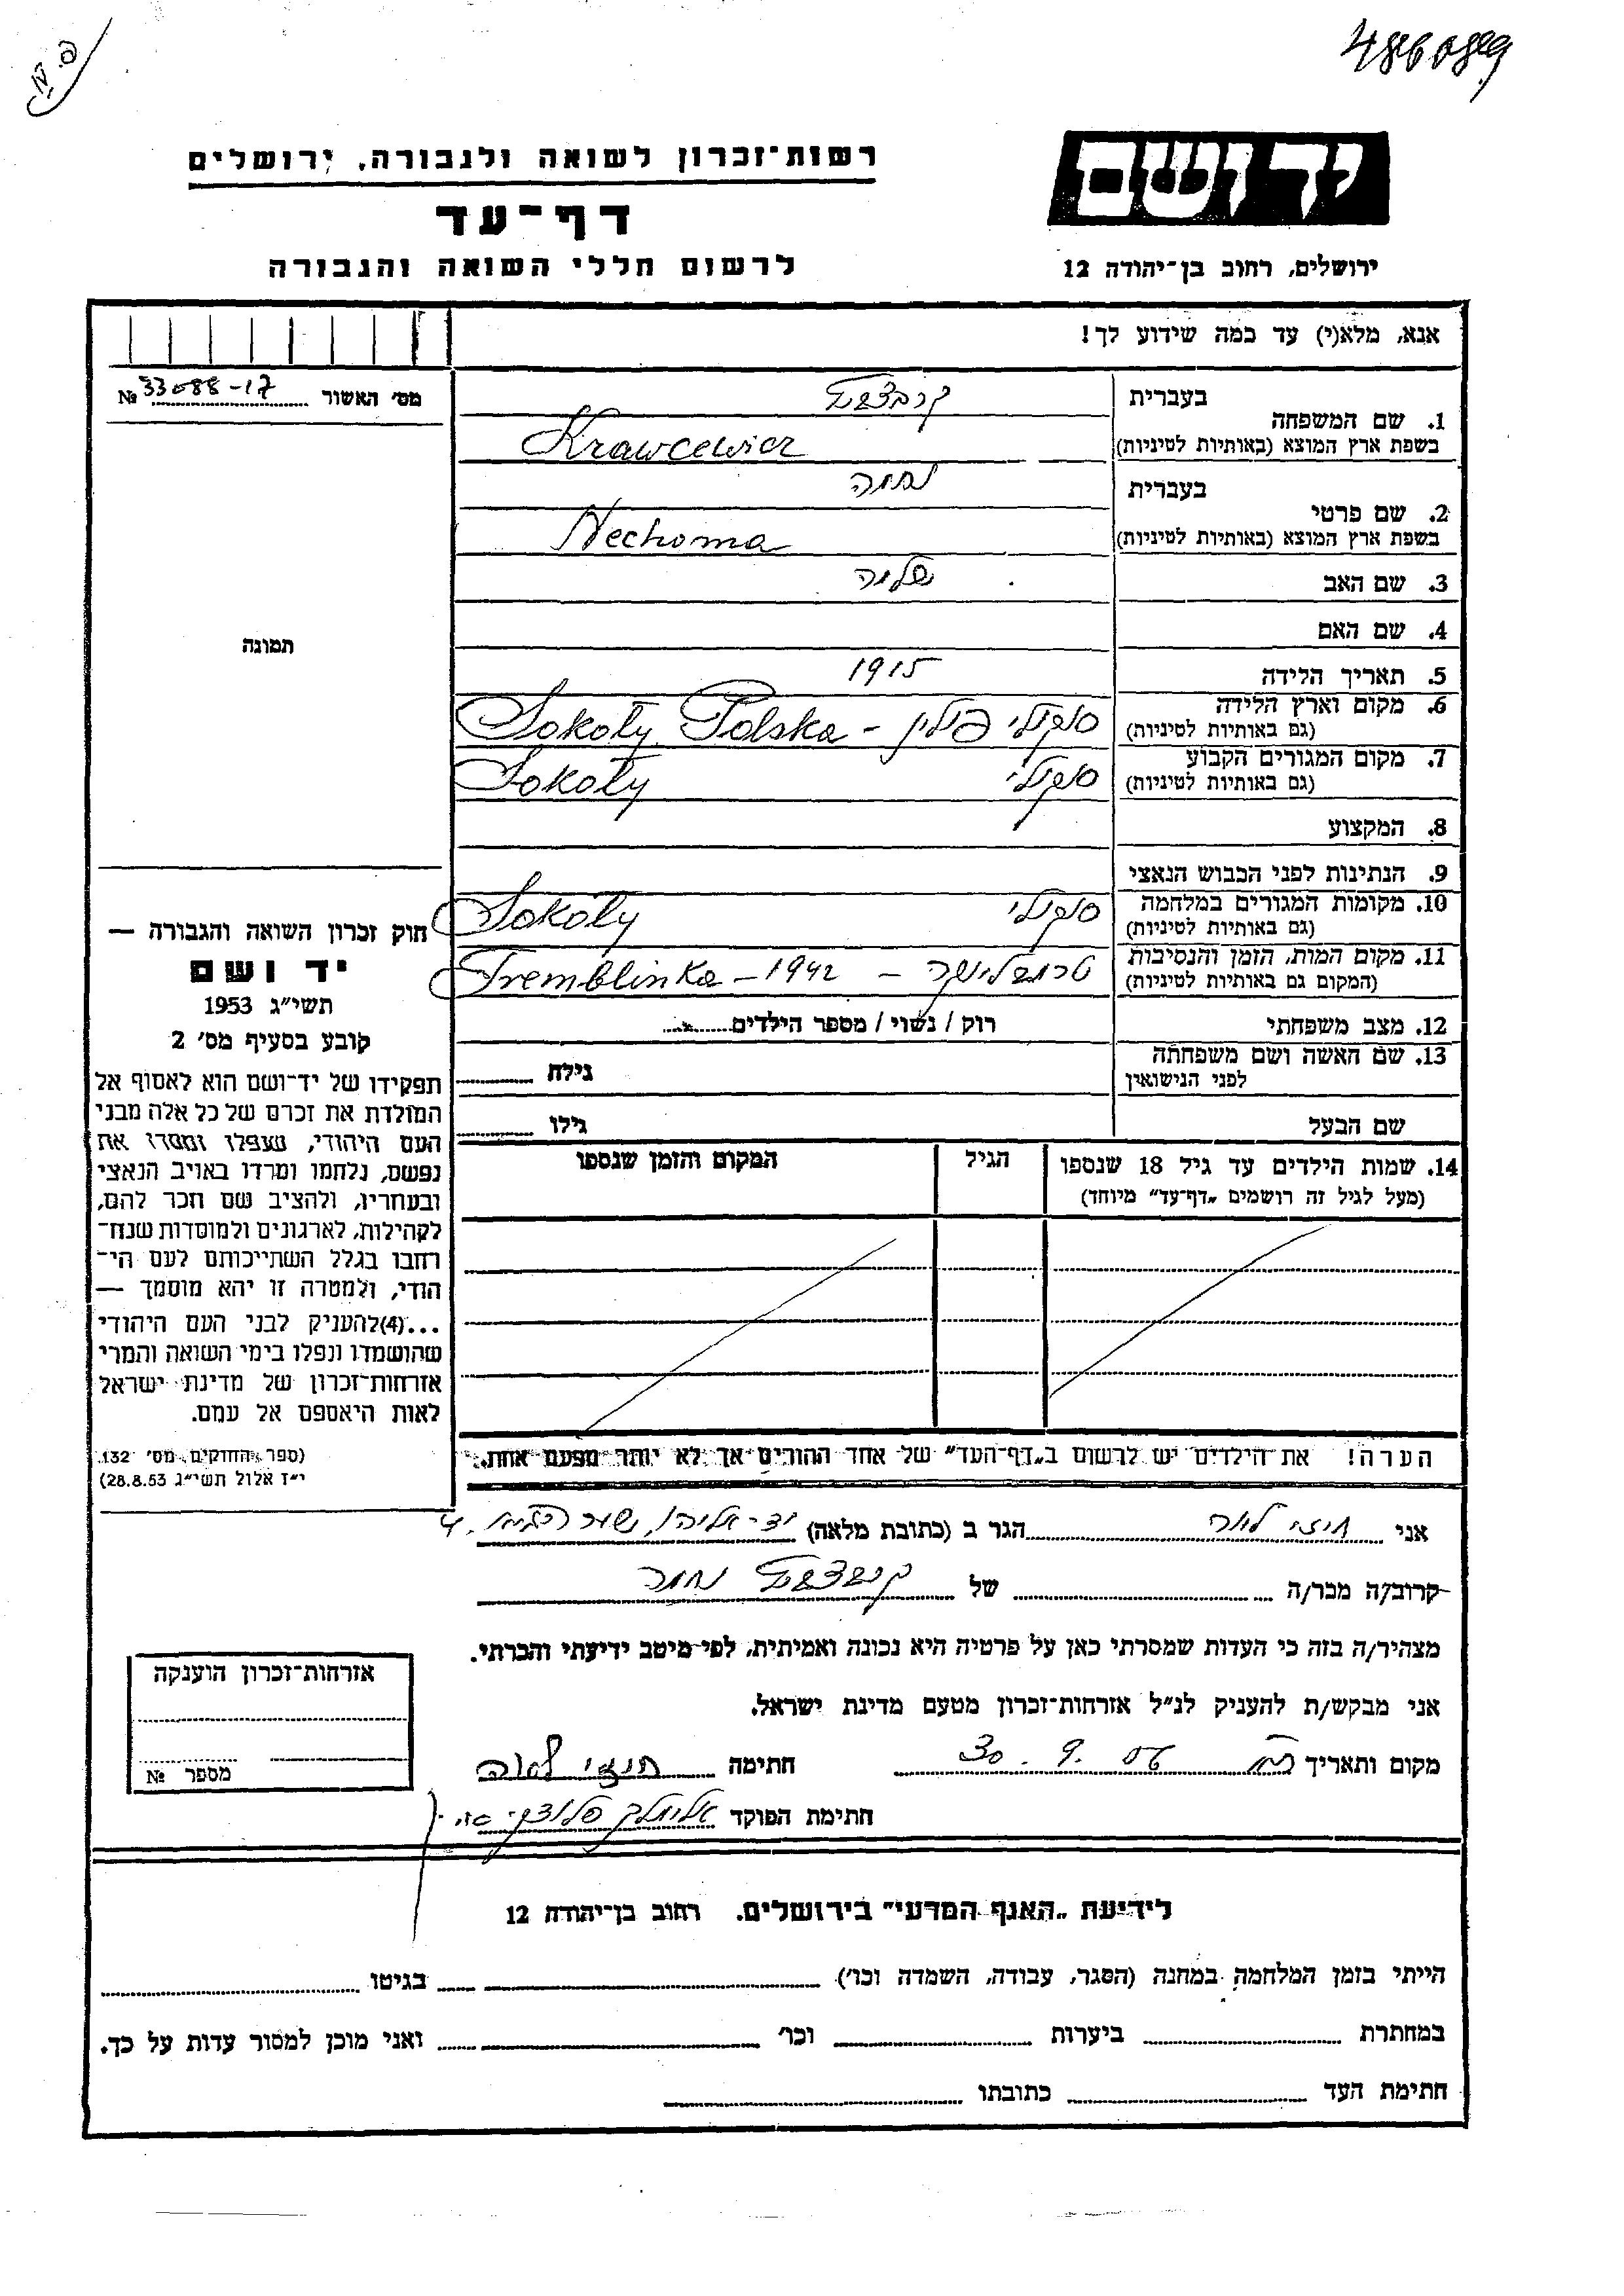 486089
רשות־זכרון לשואה ולגבורה, ירושלים
יד ושם
דף־עד
לרשום חללי השואה והגבורה
ירושלים, רחוב בן־יהודה 12
אנא, מלא(י) עד כמה שידוע לך!
מס׳ האשור № 33088-17
בעברית
1. שם המשפחה
בשפת ארץ המוצא (באותיות לטיניות) Krawcewicz
בעברית נחמה
2. שם פרטי
בשפת ארץ המוצא (באותיות לטיניות) Nechoma
3. שם האב שלמה
4. שם האם
תמונה
5. תאריך הלידה 1915
6. מקום וארץ הלידה סוקולי פולין - Sokoły Polska
(גם באותיות לטיניות)
7. מקום המגורים הקבוע סוקולי Sokoły
(גם באותיות לטיניות)
8. המקצוע
9. הנתינות לפני הכבוש הנאצי
10. מקומות המגורים במלחמה סוקולי Sokoły
(גם באותיות לטיניות)
11. מקום המות, הזמן והנסיבות טרמבלינקה - 1942 - Tremblinka
(המקום גם באותיות לטיניות)
12. מצב משפחתי רוק / נשוי / מספר הילדים
13. שם האשה ושם משפחתה גילה
לפני הנישואין
שם הבעל גילו
14. שמות הילדים עד גיל 18 שנספו הגיל המקום והזמן שנספו
(מעל לגיל זה רושמים „דף־עד״ מיוחד)
הערה! את הילדים יש לרשום ב„דף־העד״ של אחד ההורים אך לא יותר מפעם אחת.
חוק זכרון השואה והגבורה —
יד ושם
תשי״ג 1953
קובע בסעיף מס׳ 2
תפקידו של יד־ושם הוא לאסוף אל
המולדת את זכרם של כל אלה מבני
העם היהודי, שנפלו ומסרו את
נפשם, נלחמו ומרדו באויב הנאצי
ובעוזריו, ולהציב שם וזכר להם,
לקהילות, לארגונים ולמוסדות שנח־
רבו בגלל השתייכותם לעם הי־
הודי, ולמטרה זו יהא מוסמך —
...(4)להעניק לבני העם היהודי
שהושמדו ונפלו בימי השואה והמרי
אזרחות־זכרון של מדינת ישראל
לאות היאספם אל עמם.
(ספר החוקים מס׳ 132.
י״ז אלול תשי״ג 28.8.53)
אני לאה הגר ב (כתובת מלאה) יד-אליהו,
קרוב/ה מכר/ה של נחמה
מצהיר/ה בזה כי העדות שמסרתי כאן על פרטיה היא נכונה ואמיתית, לפי מיטב ידיעתי והכרתי.
אני מבקש/ת להעניק לנ״ל אזרחות־זכרון מטעם מדינת ישראל.
מקום ותאריך 30.9.56 חתימה לאה
חתימת הפוקד
אזרחות־זכרון הוענקה
מספר №
לידיעת „האגף המדעי״ בירושלים. רחוב בן־יהודה 12
הייתי בזמן המלחמה במחנה (הסגר, עבודה, השמדה וכו׳) בגיטו
במחתרת ביערות וכו׳ ואני מוכן למסור עדות על כך.
חתימת העד כתובתו